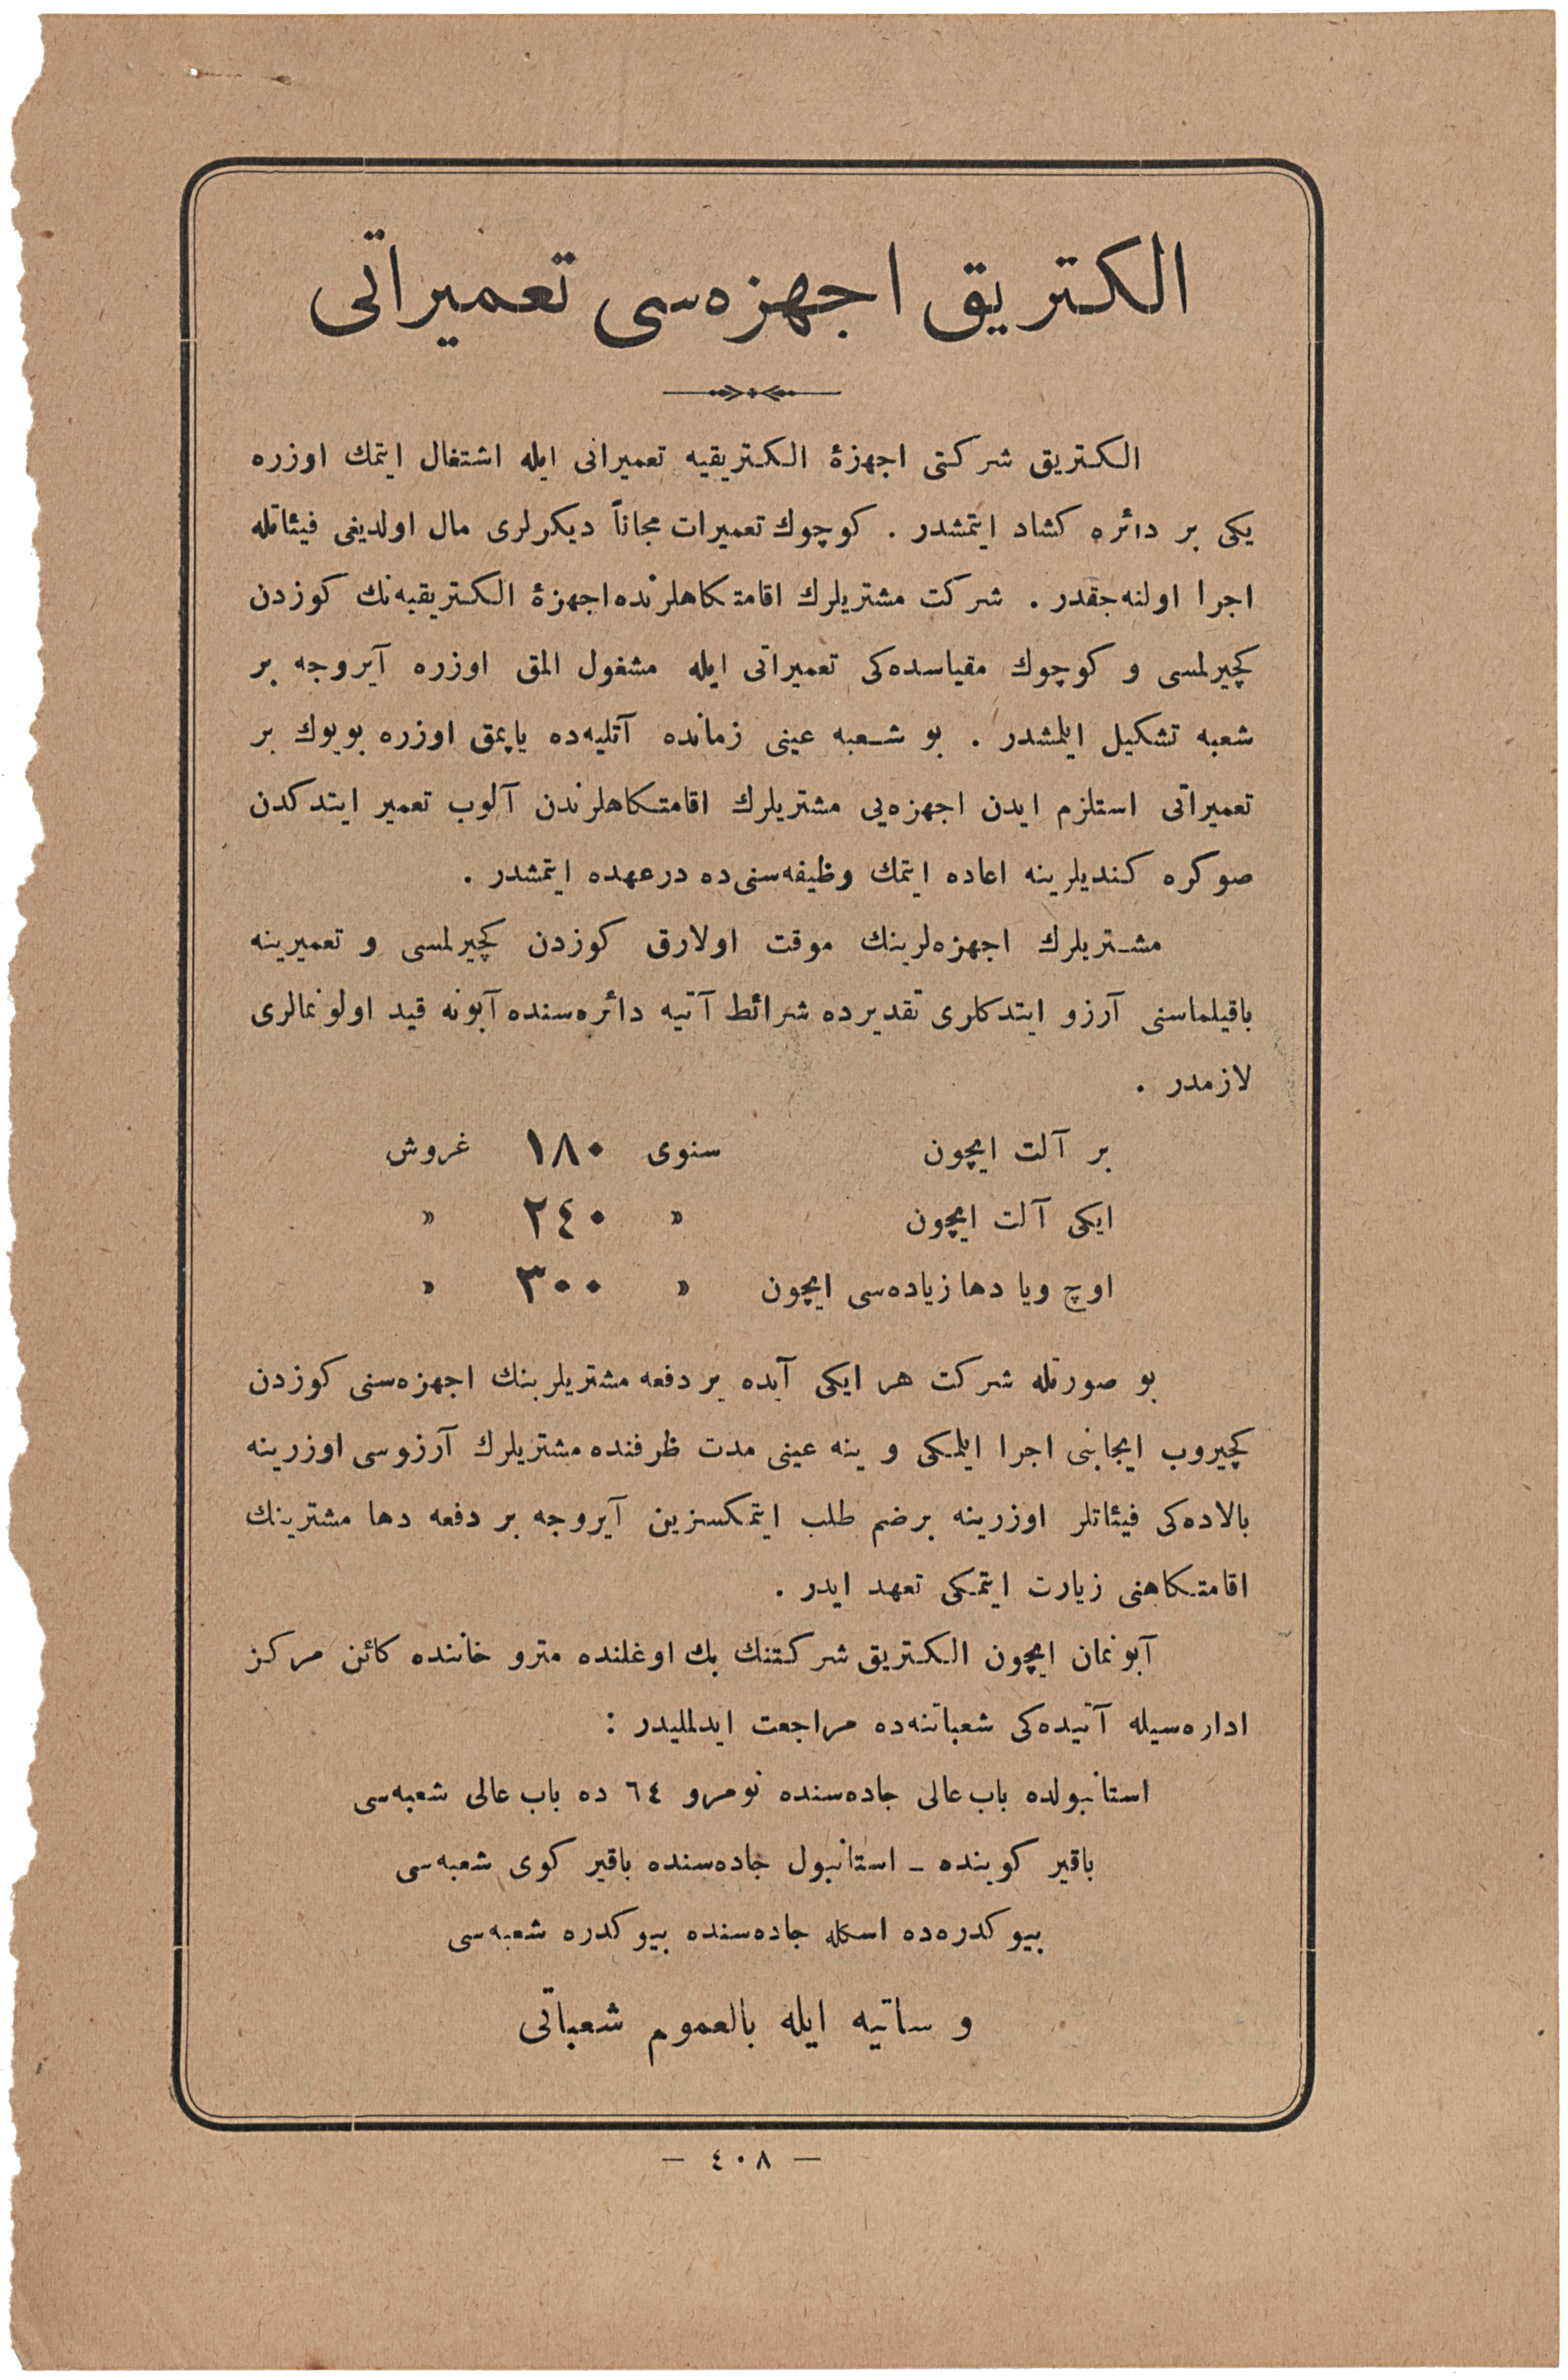 الكتريق اجهزه‌سی تعمیراتی
الكتریق شركتی اجهزۀ الكتریقیه تعمیراتی ایله اشتغال ایتمك اوزره
یكی بر دائره كشاد ایتمشدر . كوچوك تعمیرات مجاناً دیكرلری مال اولدیغی فیئاتله
اجرا اولنه‌جقدر . شركت مشتریلرك اقامتكاهلرنده اجهزۀ الكتریقیه‌نك كوزدن
كچیرلمسی و كوچوك مقیاسده‌كی تعمیراتی ایله مشغول المق اوزره آیروجه بر
شعبه تشكیل ایلمشدر . بو شعبه عینی زمانده آتلیه‌ده یاپمق اوزره بویوك بر
تعمیراتی استلزم ایدن اجهزه‌یی مشتریلرك اقامتكاهلرندن آلوب تعمیر ایتدكدن
صوكره كندیلرینه اعاده ایتمك وظیفه‌سنی‌ده درعهده ایتمشدر .
مشتریلرك اجهزه‌لرینك موقت اولارق كوزدن كچیرلمسی و تعمیرینه
باقیلماسنی آرزو ایتدكلری تقدیرده شرائط آتیه دائره‌سنده آبونه قید اولونمالری
لازمدر .
بر آلت ایچون سنوی ۱۸۰ غروش
ایكی آلت ایچون » ٢٤٠ »
اوچ ویا دها زیاده‌سی ایچون » ۳۰۰ »
بو صورتله شركت هر ایكی آیده بر دفعه مشتریلرینك اجهزه‌سنی كوزدن
كچیروب ایجابنی اجرا ایلمكی و ینه عینی مدت ظرفنده مشتریلرك آرزوسی اوزرینه
بالاده‌كی فیئاتلر اوزرینه برضم طلب ایتمكسزین آیروجه بر دفعه دها مشترینك
اقامتكاهنی زیارت ایتمكی تعهد ایدر .
آبونمان ایچون الكتریق شركتنك بك اوغلنده مترو خاننده كائن مركز
اداره‌سیله آتیده‌كی شعباتنه‌ده مراجعت ایدلملیدر :
استانبولده باب عالی جاده‌سنده نومرو ٦٤ ده باب عالی شعبه‌سی
باقیر كوینده ـ استانبول جاده‌سنده باقیر كوی شعبه‌سی
بیوكدره‌ده اسكله جاده‌سنده بیوكدره شعبه‌سی
و ساتیه ایله بالعموم شعباتی
— ٤٠٨ —